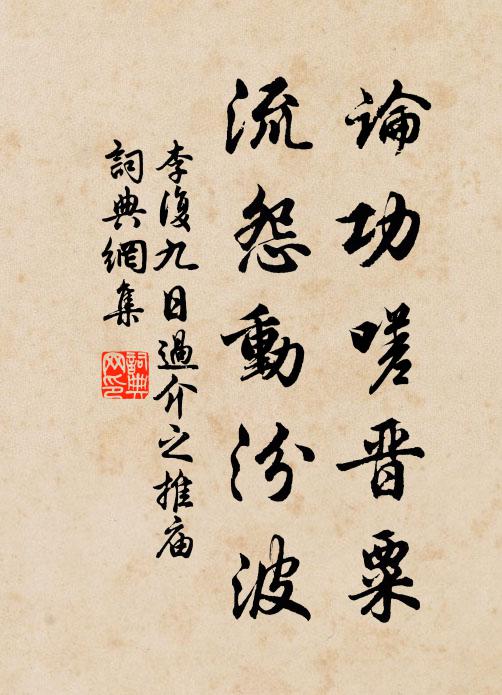 論功嗟晋粟
流怨動汾波
李復九日過介之推庙
詞典網集
詞典
网印